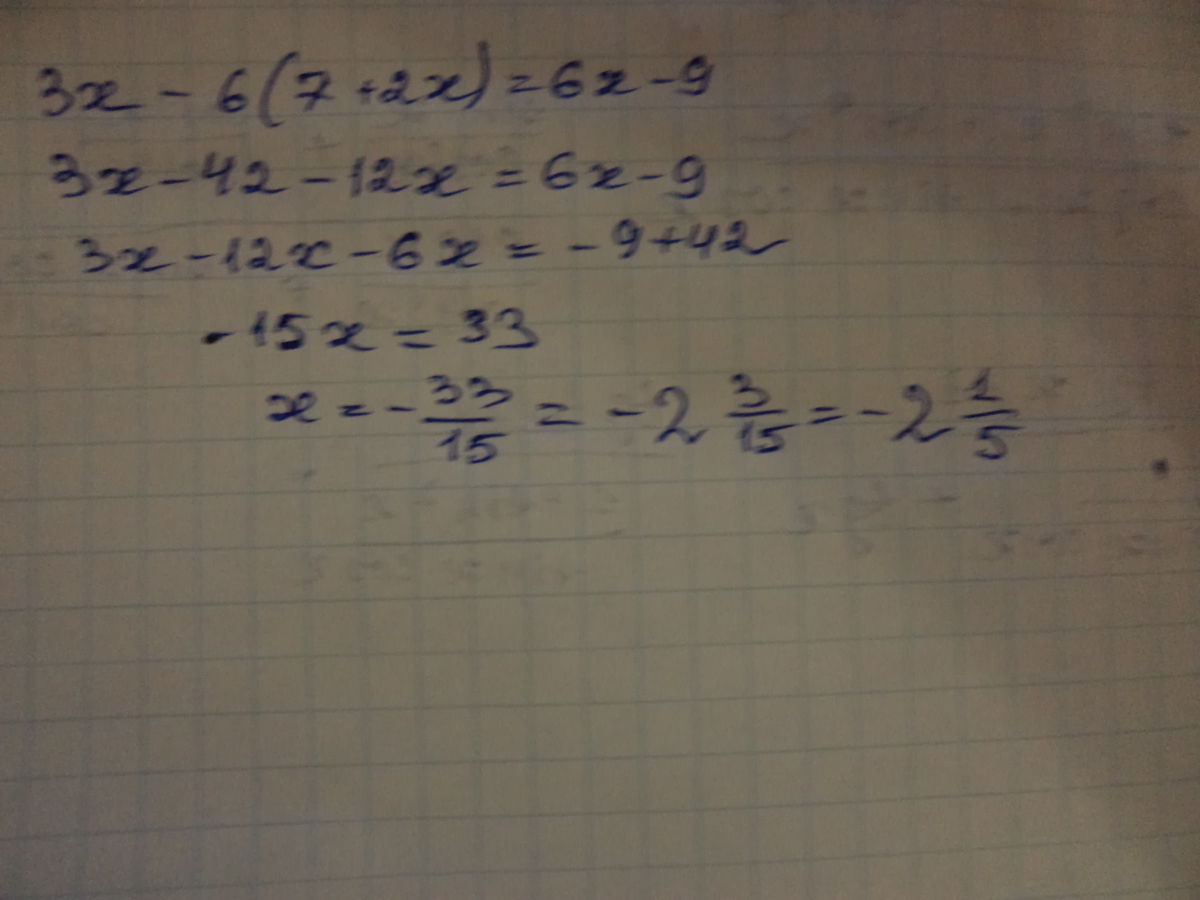 3x - 6(7+2x)=6x-9
3x-42-12x=6x-9
3x-12x-6x=-9+42
-15x=33
x=-33/15=-2 3/15=-2 1/5